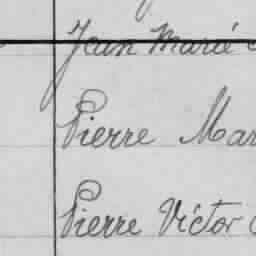 Jean Marie
Pierre Mar
Pierre Victor